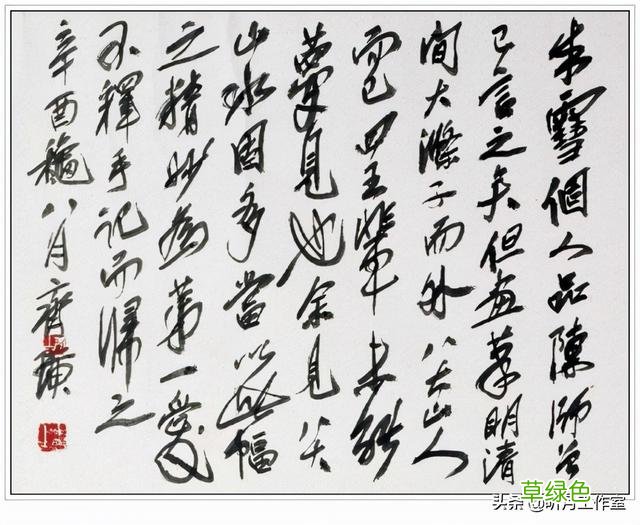 朱雪個人品陳師曾
已言之矣但畫筆明清
間大滌子而外八大山人
而已四王輩未能
夢見也余見八大
山水固多當以此幅
之精妙為第一愛
不釋手記而歸之
辛酉穐八月齊璜
草绿色
头条